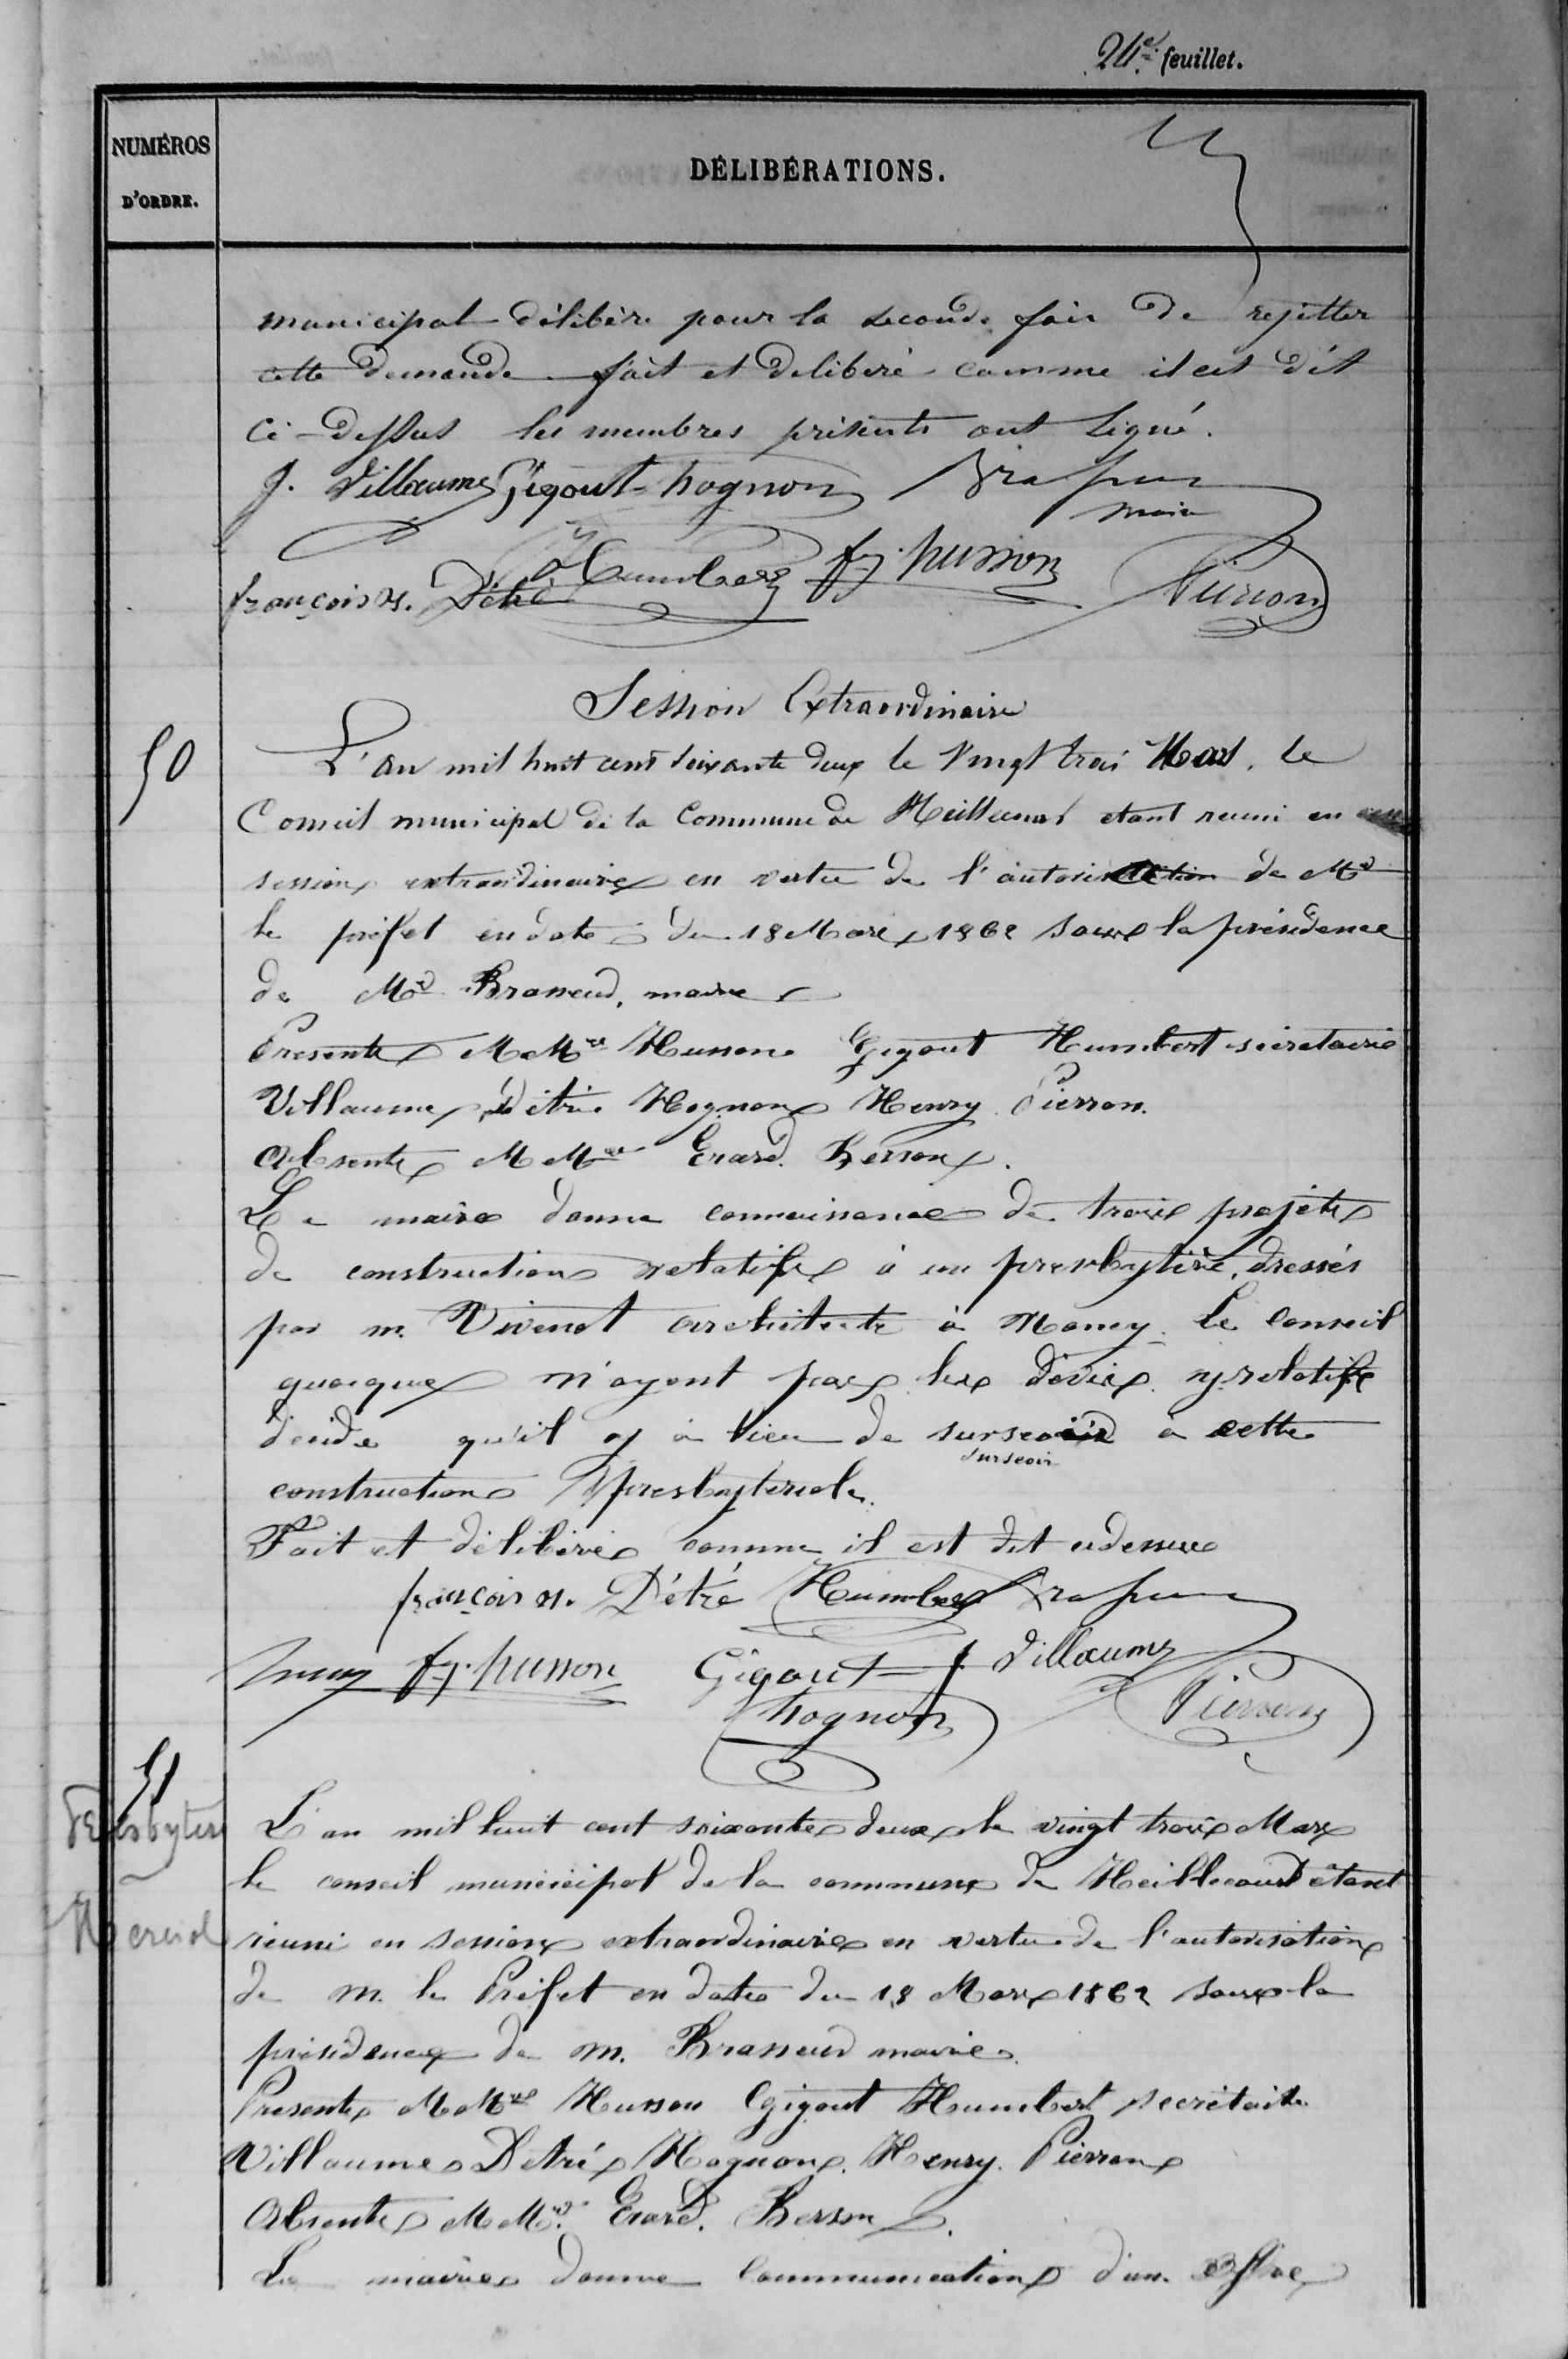 24e feuillet.
NUMÉROS
D'ORDRE.
DÉLIBÉRATIONS.
municipal délibère pour la seconde fois de rejetter
cette demande fait et delibéré comme il est dit
Ci-dessus les membres présents ont signé.
J. Villaume Gigout hognon Brasseur
maire
françois n. Détré Humbert fz. husson Pierron
Session Extraordinaire
50
L'an mil huit cent soixante deux le Vingt trois Mars, le
Conseil municipal de la Commune de Heillecourt etant reuni en
session extraordinaire en vertu de l'autorisation de Mr
le préfet en date du 18 Mars 1862 sous la présidence
de Mr Brasseur, maire
Presents MeMrs Husson Gigout Humbert sécretaire
Villaume, Détré Hognon Henry Pierron.
Absents MeMrs Erard. Berson.
Le maire donne connaissance de trois projets
de construction relatifs à un presbytère, dressés
par m. Vivenot architecte à Nancy. Le Conseil
quoique n'ayant pas les dévis y relatifs
décide qu'il y à lieu de surseoir à cette
surseoir
construction presbyteriale.
Fait et délibéré comme il est dit cidessus
françois n. Détré Humbert Brasseur
henry fz. husson Gigout J. Villaume
hognon Pierron
51
Presbytere
L'an mil huit cent soixante deux le vingt trois Mars
le conseil municicipal de la commune de Heillecourt étant
réuni en session extraordinaire en vertu de l'autorisation
de m. le Préfet en date du 18 Mars 1862 sous la
présidence de m. Brasseur maire.
Presents MeMrs Husson Gigout Humbert secrétaire
Villaume Détré Hognon. Henry. Pierron
Absents MeMrs. Erard. Berson.
Le maire donne Communication d'un offre